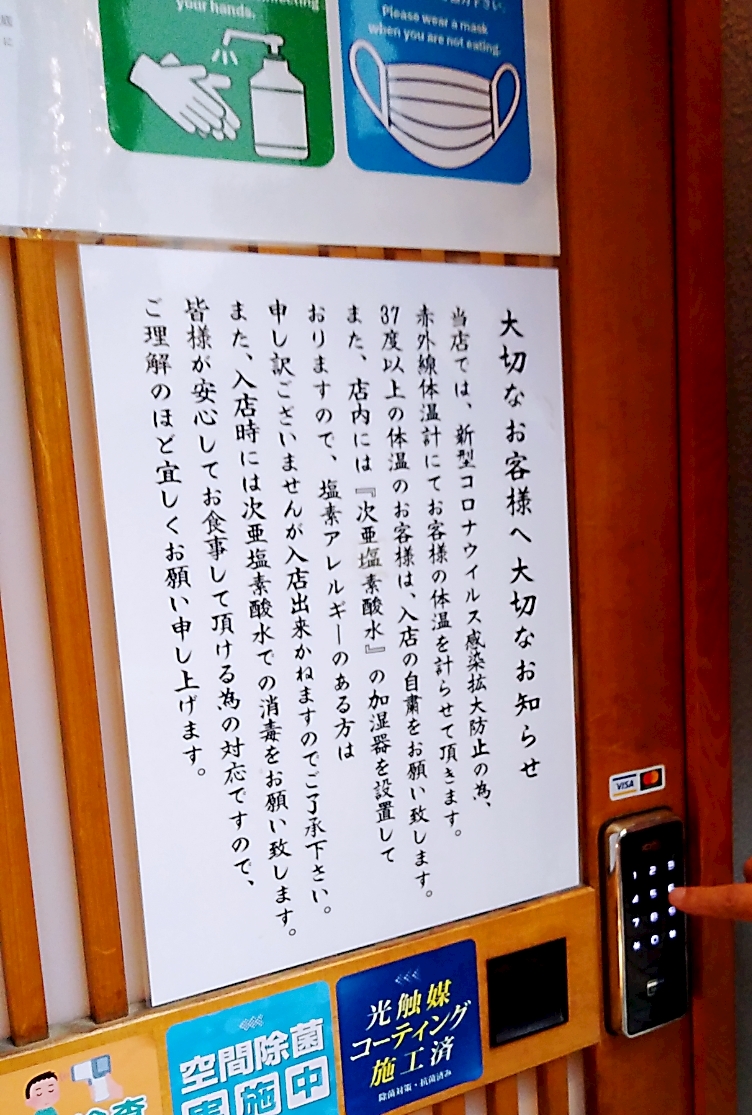 your hands.
Please wear a mask
when you are not eating.
大切なお客様へ大切なお知らせ
当店では、新型コロナウイルス感染拡大防止の為、
赤外線体温計にてお客様の体温を計らせて頂きます。
37度以上の体温のお客様は、入店の自粛をお願い致します。
また、店内には『次亜塩素酸水』の加湿器を設置して
おりますので、塩素アレルギーのある方は
申し訳ございませんが入店出来かねますのでご了承下さい。
また、入店時には次亜塩素酸水での消毒をお願い致します。
皆様が安心してお食事して頂ける為の対応ですので、
ご理解のほど宜しくお願い申し上げます。
VISA
1 2 3
4 5 6
7 8 9
* 0 #
光触媒
コーティング
施工済
除菌対策・抗菌済み
空間除菌
実施中
検査